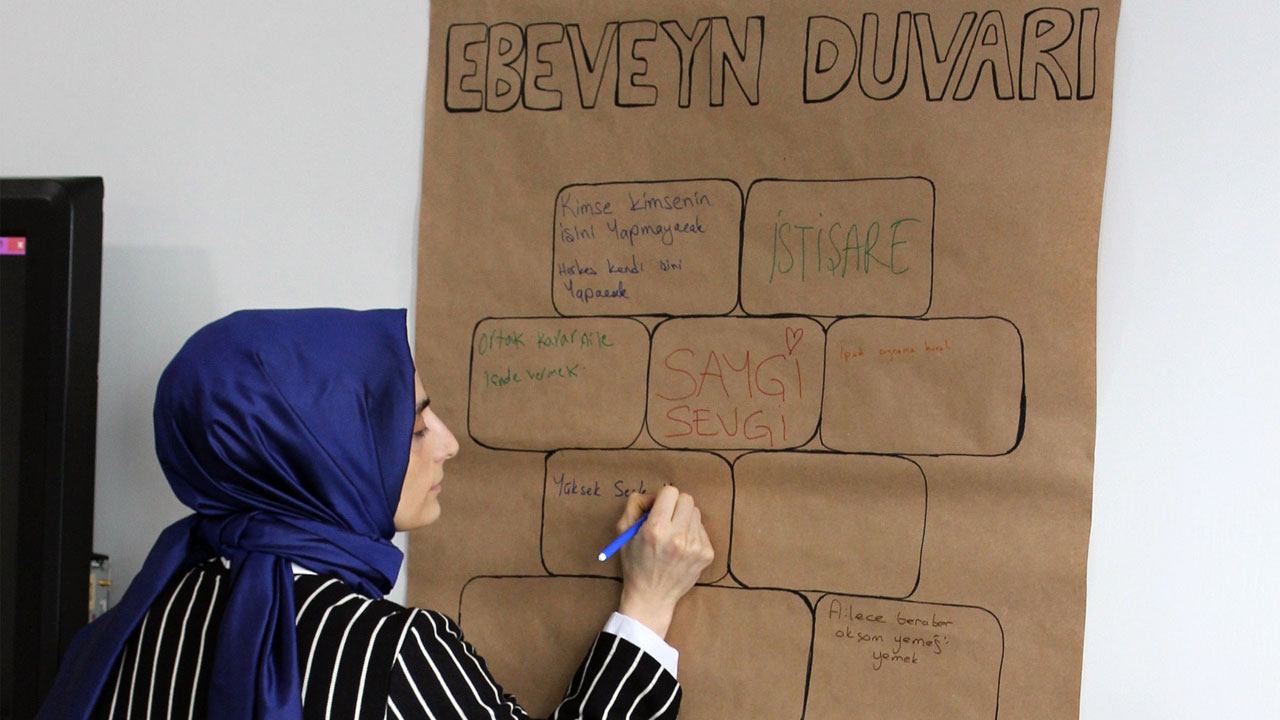 EBEVEYN DUVARI
Kimse kimsenin
işini Yapmayacak
Herkes kendi işini
Yapacak
İSTİŞARE
Ortak Karar Aile
içinde vermek.
SAYGI
SEVGİ
ipak oynama
Yüksek
Ailece beraber
akşam yemeği
yemek